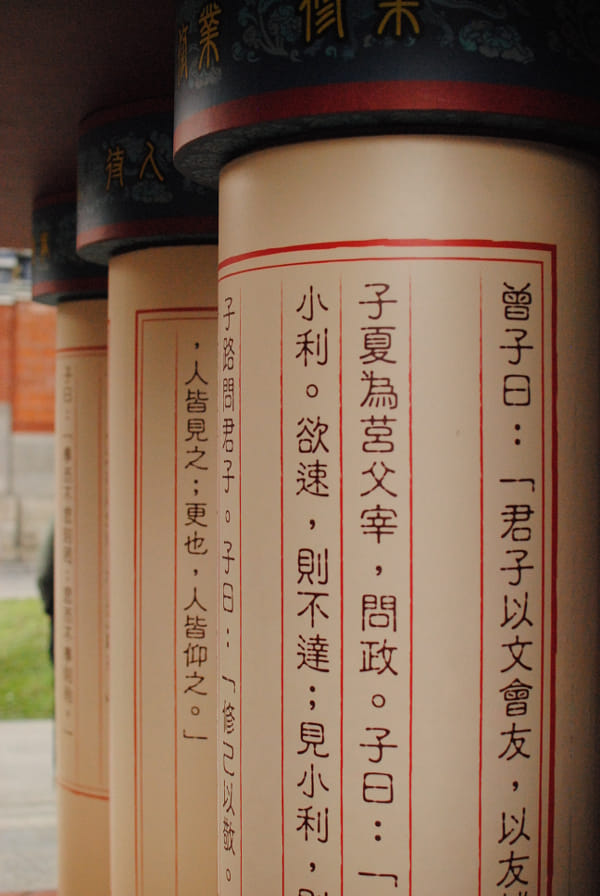 修業
業
待人
曾子曰：「君子以文會友，以友
子夏為莒父宰，問政。子曰：「
小利。欲速，則不達；見小利，
子路問君子。子曰：「修己以敬。
，人皆見之；更也，人皆仰之。」
子曰：「